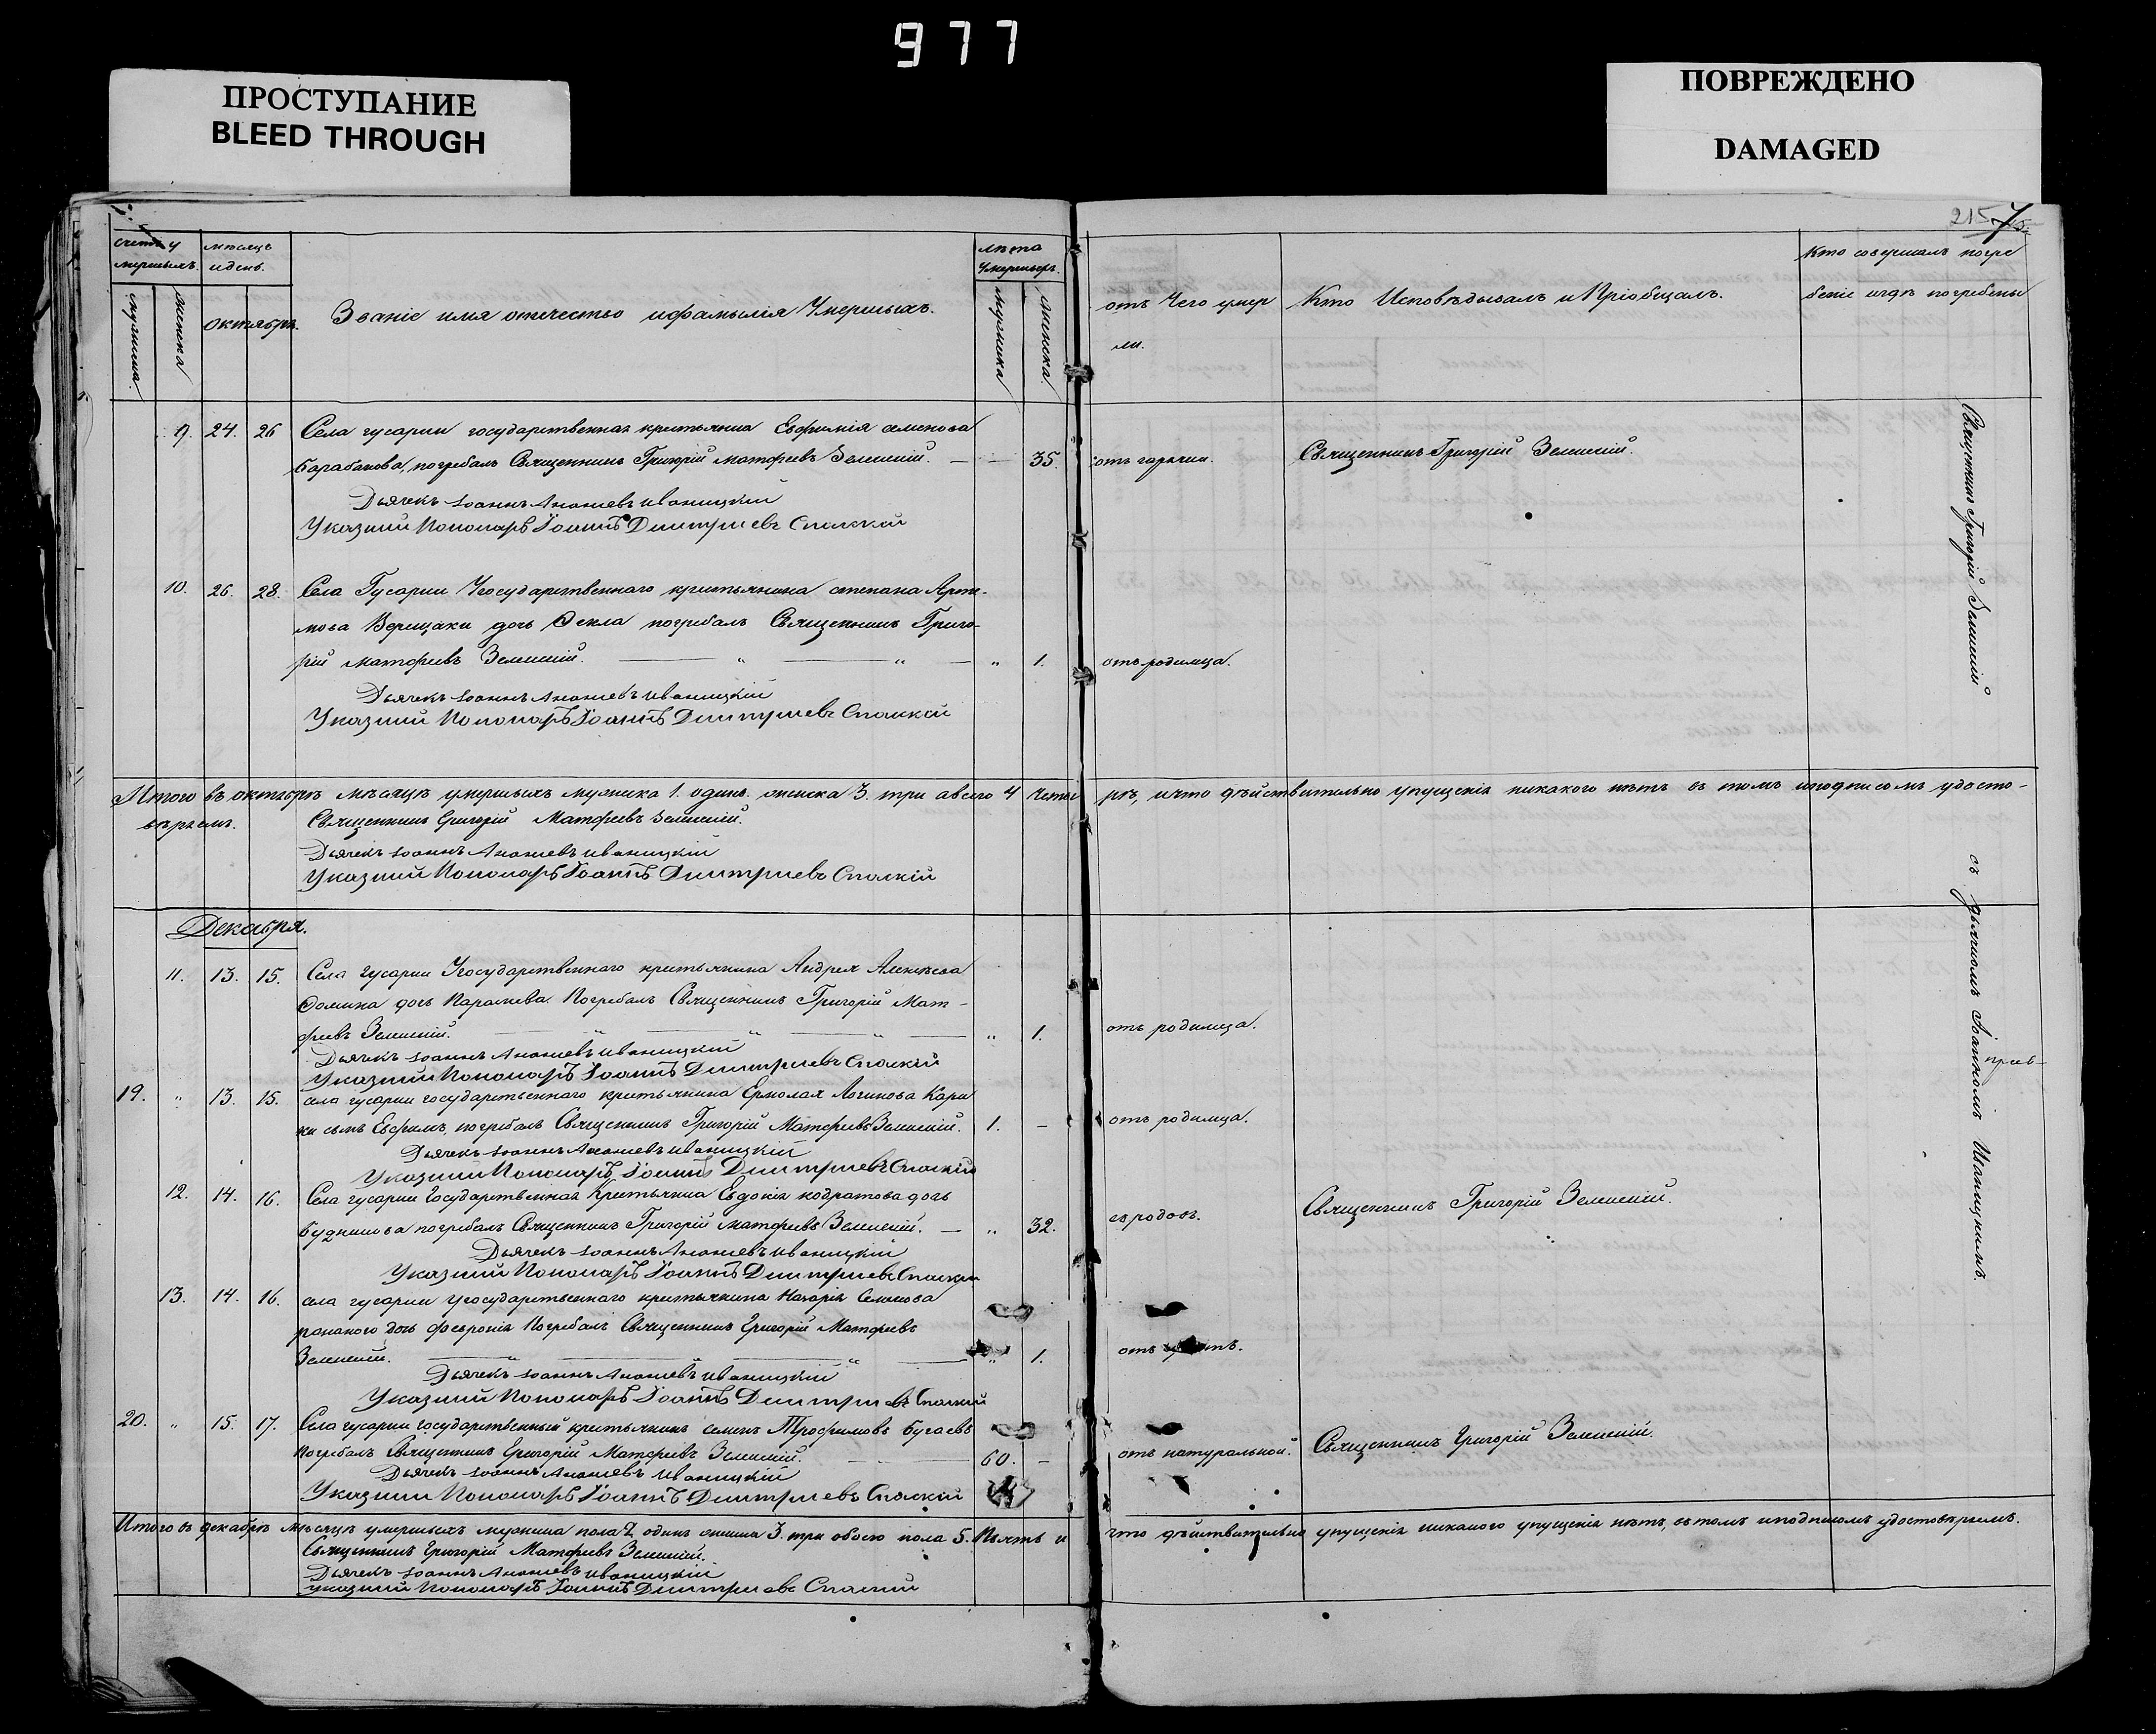 977
ПРОСТУПАНИЕ
BLEED THROUGH
ПОВРЕЖДЕНО
DAMAGED
215
счетъ у
мершыхъ.
мужеска.
женска
мѣсяцъ
и день.
октябрь.
Званіе имя отечество и фамылія Умершыхъ.
лѣта
Умершыхъ.
мужеска
женска.
отъ Чего умер
ли.
Кто Исповѣдывалъ и Пріобщалъ.
Кто совершалъ погре
беніе и гдѣ погребены
9. 24. 26 Села гусарки государственная крестьянка Евфимія семенова
Барабанова, погребалъ Священникъ Григорій матфеевъ Зеленскій. — — 35. отъ горячки. Священникъ Григорій Зеленскій.
Дьячекъ Іоаннъ Ананіевъ Иваницкій
Указный Пономарь Іоаннъ Димтріевъ Спаскій
10. 26. 28. Села Гусарки Государственнаго крестьянина степана Арте-
мова Верещаки дочь Фекла погребалъ Священникъ Григо-
рій матфеевъ Зеленскій. — „ — „ — „ 1. отъ родимца.
Дьячекъ Іоаннъ Ананіевъ Иваницкій
Указный Пономарь Іоаннъ Димтріевъ Спаскій
Священникъ Григорій Зеленскій
съ дьячкомъ Іоанномъ Иваницкимъ.
Итого въ октябрѣ мѣсяцѣ умершыхъ мужеска 1. одинъ. женска 3. три а всего 4 четы ре, и что дѣйствительно упущенія никакого нѣтъ въ томъ и подписомъ удосто-
вѣряемъ. Священникъ Григорій Матфеевъ Зеленскій.
Дьячекъ Іоаннъ Ананіевъ Иваницкій
Указный Пономарь Іоаннъ Димтріевъ Спаскій
Декабря.
11. 13. 15. Села гусарки Государственнаго крестьянина Андрея Алексѣева
Фомина дочь Параскева. Погребалъ Священникъ Григорій Мат-
феевъ Зеленскій. — „ — „ — „ 1. отъ родимца.
Дьячекъ Іоаннъ Ананіевъ Иваницкій
Указный Пономарь Іоаннъ Димтріевъ Спаскій
19. „ 13. 15. села гусарки государственнаго крестьянина Ермолая Логинова
сынъ Евфимъ, погребалъ Священникъ Григорій Матфеевъ Зеленскій. 1. — отъ родимца.
Дьячекъ Іоаннъ Ананіевъ Иваницкій
Указный Пономарь Іоаннъ Димтріевъ Спаскій
12. 14. 16. Села гусарки Государственная Крестьянка Евдокія кодратова дочь
Будникова погребалъ Священникъ Григорій матфеевъ Зеленскій. — „ 32. съ родовъ. Священникъ Григорій Зеленскій.
Дьячекъ Іоаннъ Ананіевъ Иваницкій
Указный Пономарь Іоаннъ Димтріевъ Спаскій
13. 14. 16. села гусарки Государственнаго крестьянина Назарія Семенова
дочь Феврокія Погребалъ Священникъ Григорій Матфеевъ
Зеленскій. — „ — „ — „ — „ 1. отъ
Дьячекъ Іоаннъ Ананіевъ Иваницкій
Указный Пономарь Іоаннъ Димтріевъ Спаскій
20. „ 15. 17. Села гусарки государственный крестьянинъ семенъ Трофимовъ Бугаевъ
погребалъ Священникъ Григорій Матфеевъ Зеленскій. 60. — отъ натуральной. Священникъ Григорій Зеленскій.
Дьячекъ Іоаннъ Ананіевъ Иваницкій
Указный Пономарь Іоаннъ Димтріевъ Спаскій
Итого въ декабрѣ мѣсяцѣ умершыхъ мужеска пола 2 одинъ женска 3. три обоего пола 5. Пять и что дѣйствительно упущенія никакого упущенія нѣтъ, въ томъ и подписомъ удостовѣряемъ.
Священникъ Григорій Матфеевъ Зеленскій.
Дьячекъ Іоаннъ Ананіевъ Иваницкій
указный Пономарь Іоаннъ Димтріевъ Спаскій